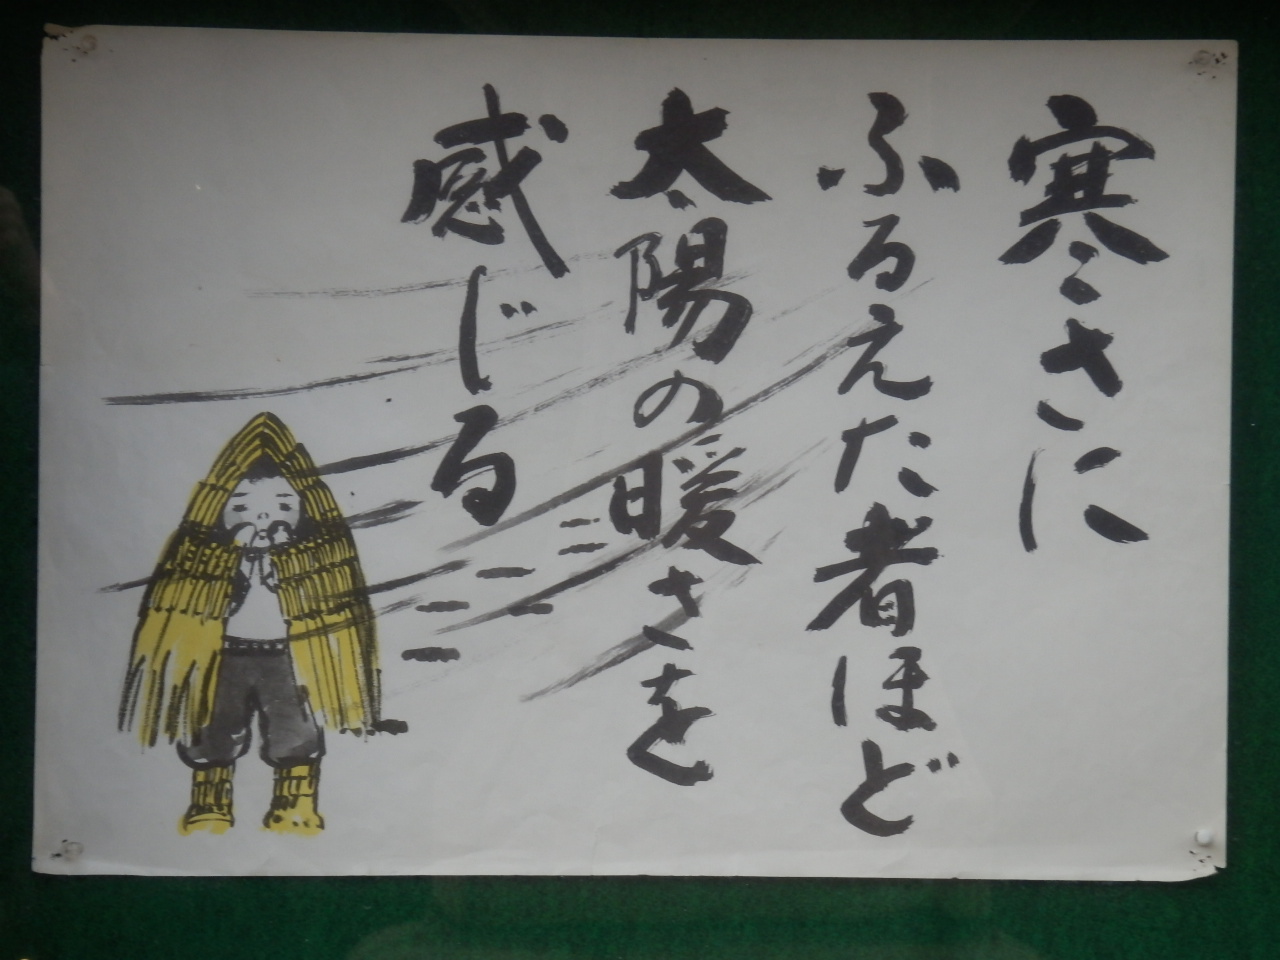 寒さに
ふるえた者ほど
太陽の暖さを
感じる